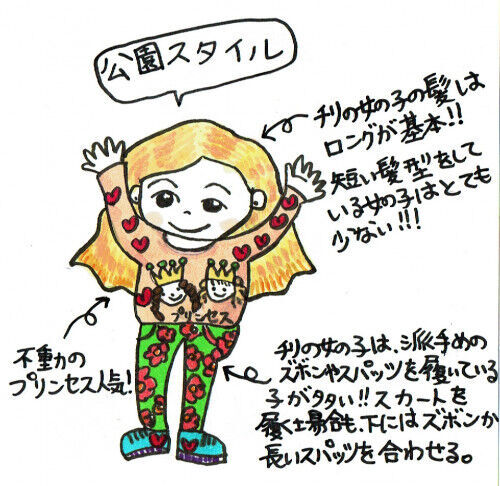 公園スタイル
チリの女の子の髪は
ロングが基本!!
短い髪型をして
いる女の子はとても
少ない!!!
プリンセス
不動の
プリンセス人気!
チリの女の子は、派手めの
ズボンやスパッツを履いている
子が多い!!スカートを
履く場合も、下にはズボンか
長いスパッツを合わせる。